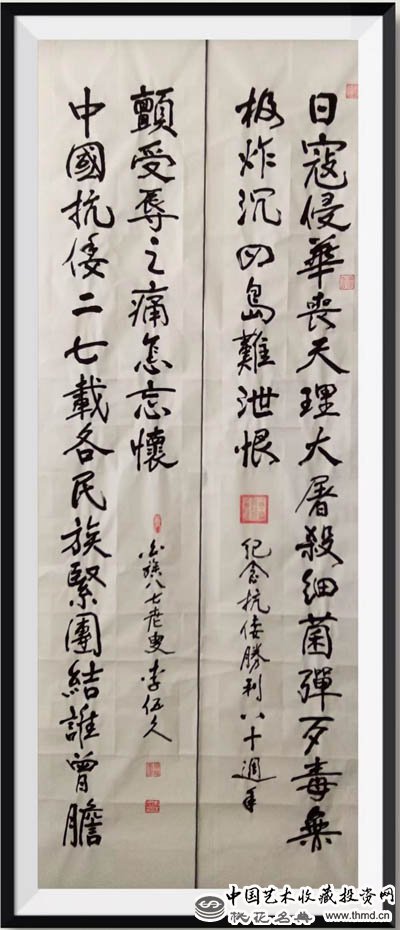 日寇侵華喪天理大屠殺細菌彈歹毒無
极炸沉四島難泄恨
紀念抗倭勝利八十週年
中國抗倭二七載各民族緊團結誰曾膽
顫受辱之痛怎忘懷
族八七老叟李伍久
中国艺术收藏投资网
桃花名典 www.thmd.cn